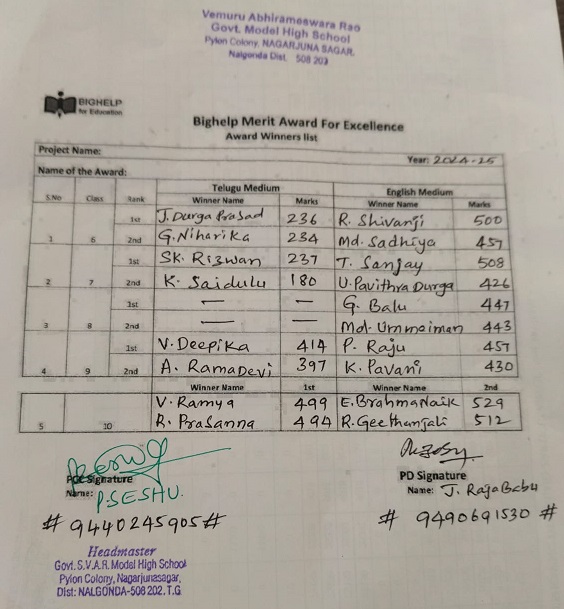 Vemuru Abhirameswara Rao
Govt. Model High School
Pylon Colony, NAGARJUNA SAGAR.
Nalgonda Dist. 508 202
BIGHELP
for Education
Bighelp Merit Award For Excellence
Award Winners list
Project Name:
Year: 2024-25
Name of the Award:
Telugu Medium English Medium
S.No Class Rank Winner Name Marks Winner Name Marks
1st J. Durga Prasad 236 R. Shivanji 500
1 6
2nd G. Niharika 234 Md. Sadhiya 457
1st SK. Rizwan 237 T. Sanjay 508
2 7 2nd K. Saidulu 180 U. Pavithra Durga 426
1st — — G. Balu 447
3 8 2nd — — Md. Ummaiman 443
1st V. Deepika 414 P. Raju 457
4 9 2nd A. RamaDevi 397 K. Pavani 430
Winner Name 1st Winner Name 2nd
V. Ramya 499 E. BrahmaNaik 529
5 10 R. Prasanna 494 R. Geethanjali 512
Signature
Name: P.SESHU.
# 9440245905#
PD Signature
Name: J. RajaBabu
# 9490691530 #
Headmaster
Govt. S.V.A.R. Model High School
Pylon Colony, Nagarjunasagar,
Dist: NALGONDA-508 202. T.G